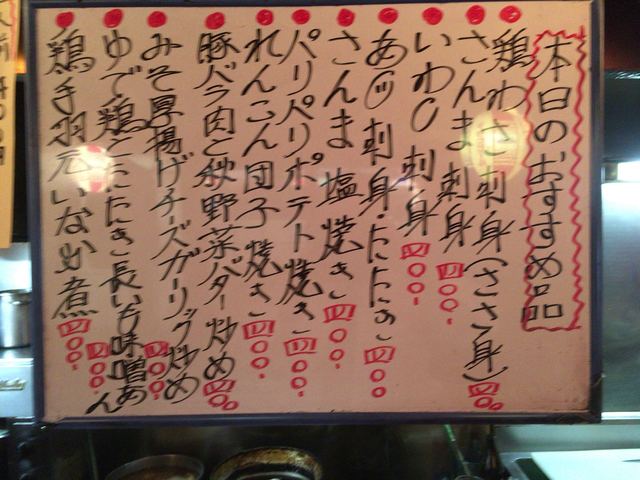 本日のおすすめ品
鶏わさ刺身(ささみ身)四〇〇
さんま刺身四〇〇.
いわし刺身四〇〇.
あじ刺身・たたき四〇〇
さんま 塩焼き四〇〇.
パリパリポテト焼き四〇〇.
れんこん団子焼き四〇〇.
豚バラ肉と秋野菜バター炒め四〇〇
みそ厚揚げチーズガーリック炒め四〇〇.
ゆで鶏とたたき長いも味噌あん四〇〇.
鶏手羽元いなか煮四〇〇.